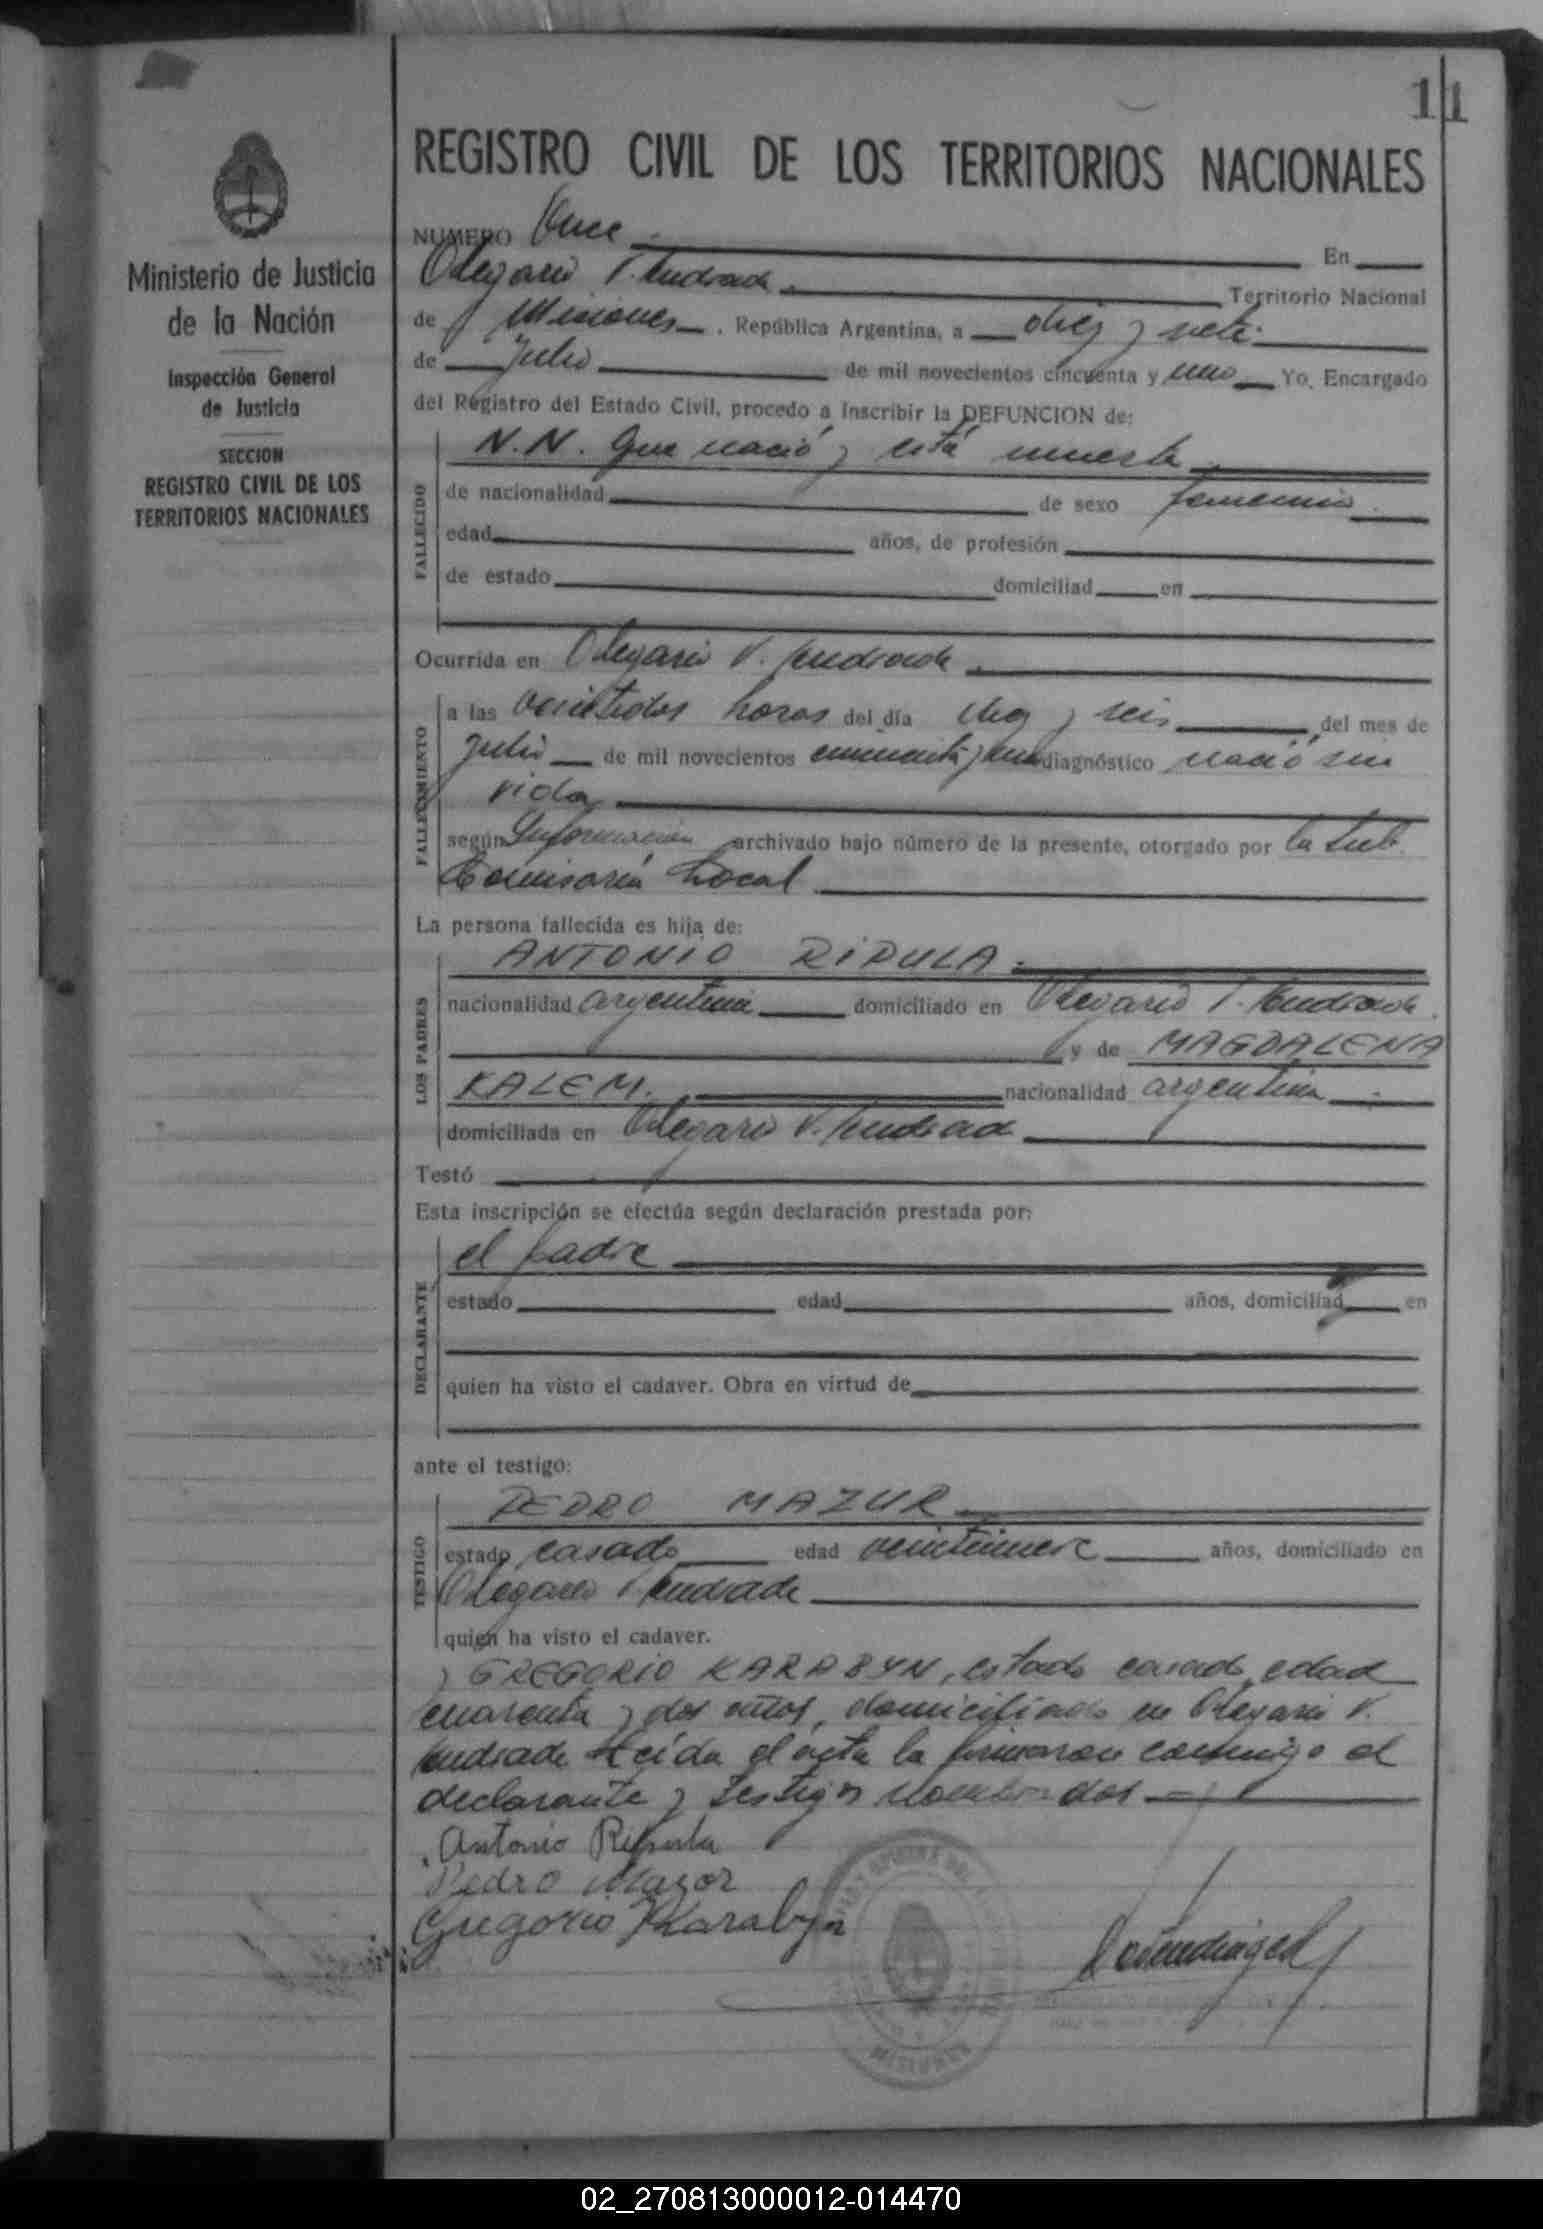 11
REGISTRO CIVIL DE LOS TERRITORIOS NACIONALES
Ministerio de Justicia
de la Nación
Inspección General
de Justicia
SECCION
REGISTRO CIVIL DE LOS
TERRITORIOS NACIONALES
NUMERO Once En
Olegario V. Andrade Territorio Nacional
de Misiones, República Argentina, a diez y siete
de Julio de mil novecientos cincuenta y uno Yo, Encargado
del Registro del Estado Civil, procedo a inscribir la DEFUNCION de:
N.N. Que nació y está muerta
FALLECIDO
de nacionalidad de sexo femenino.
edad años, de profesión
de estado domiciliad en
Ocurrida en Olegario V. Andrade
FALLECIMIENTO
a las veintidos horas del día diez y seis del mes de
Julio de mil novecientos cincuenta y uno diagnóstico nació sin
vida
según Información archivado bajo número de la presente, otorgado por la Sub
Comisaría Local
La persona fallecida es hija de:
LOS PADRES
ANTONIO RIPULA.
nacionalidad argentina domiciliado en Olegario V. Andrade.
y de MAGDALENA
KALEM. nacionalidad argentina
domiciliada en Olegario V. Andrade
Testó
Esta inscripción se efectúa según declaración prestada por:
DECLARANTE
el padre
estado edad años, domiciliad en
quien ha visto el cadaver. Obra en virtud de
ante el testigo:
TESTIGO
PEDRO MAZUR
estado casado edad veintinueve años, domiciliado en
Olegario V. Andrade
quien ha visto el cadaver.
y GREGORIO KARABYN, estado casado, edad
cuarenta y dos años, domiciliado en Olegario V.
Andrade Leída el acta la firmaron conmigo el
declarante y testigos nombrados
Antonio Ripula
Pedro Mazor
Gregorio Karabyn
MISIONES
02_270813000012-014470